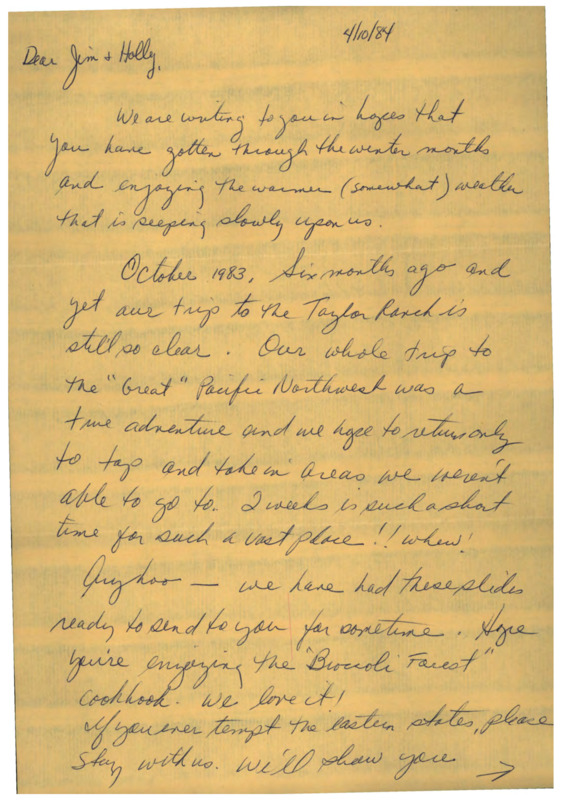 4/10/84
Dear Jim & Holly,
We are writing to you in hopes that
you have gotten through the winter months
and enjoying the warmer (somewhat) weather
that is seeping slowly upon us.
October 1983, Six months ago and
yet our trip to the Taylor Ranch is
still so clear. Our whole trip to
the "Great" Pacific Northwest was a
true adventure and we hope to return only
to tap and take in areas we weren't
able to go to. 2 weeks is such a short
time for such a vast place!! whew!
Anyhoo — we have had these slides
ready to send to you for sometime. Hope
you're enjoying the "Broccoli Forest"
cookbook. We love it!
If you ever tempt the eastern states, please
stay with us. We'll show you
→